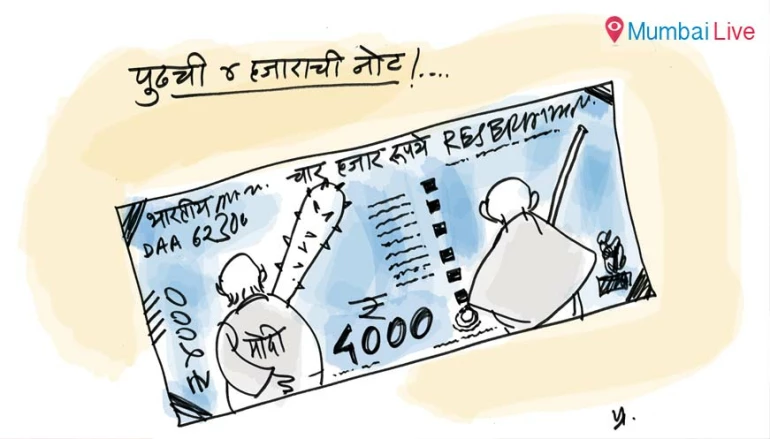 Mumbai Live
पुढची ४ हजाराची नोट!....
चार हजार रुपये
भारतीय
DAA 62306
₹ 4000
₹ 4000
मोदी